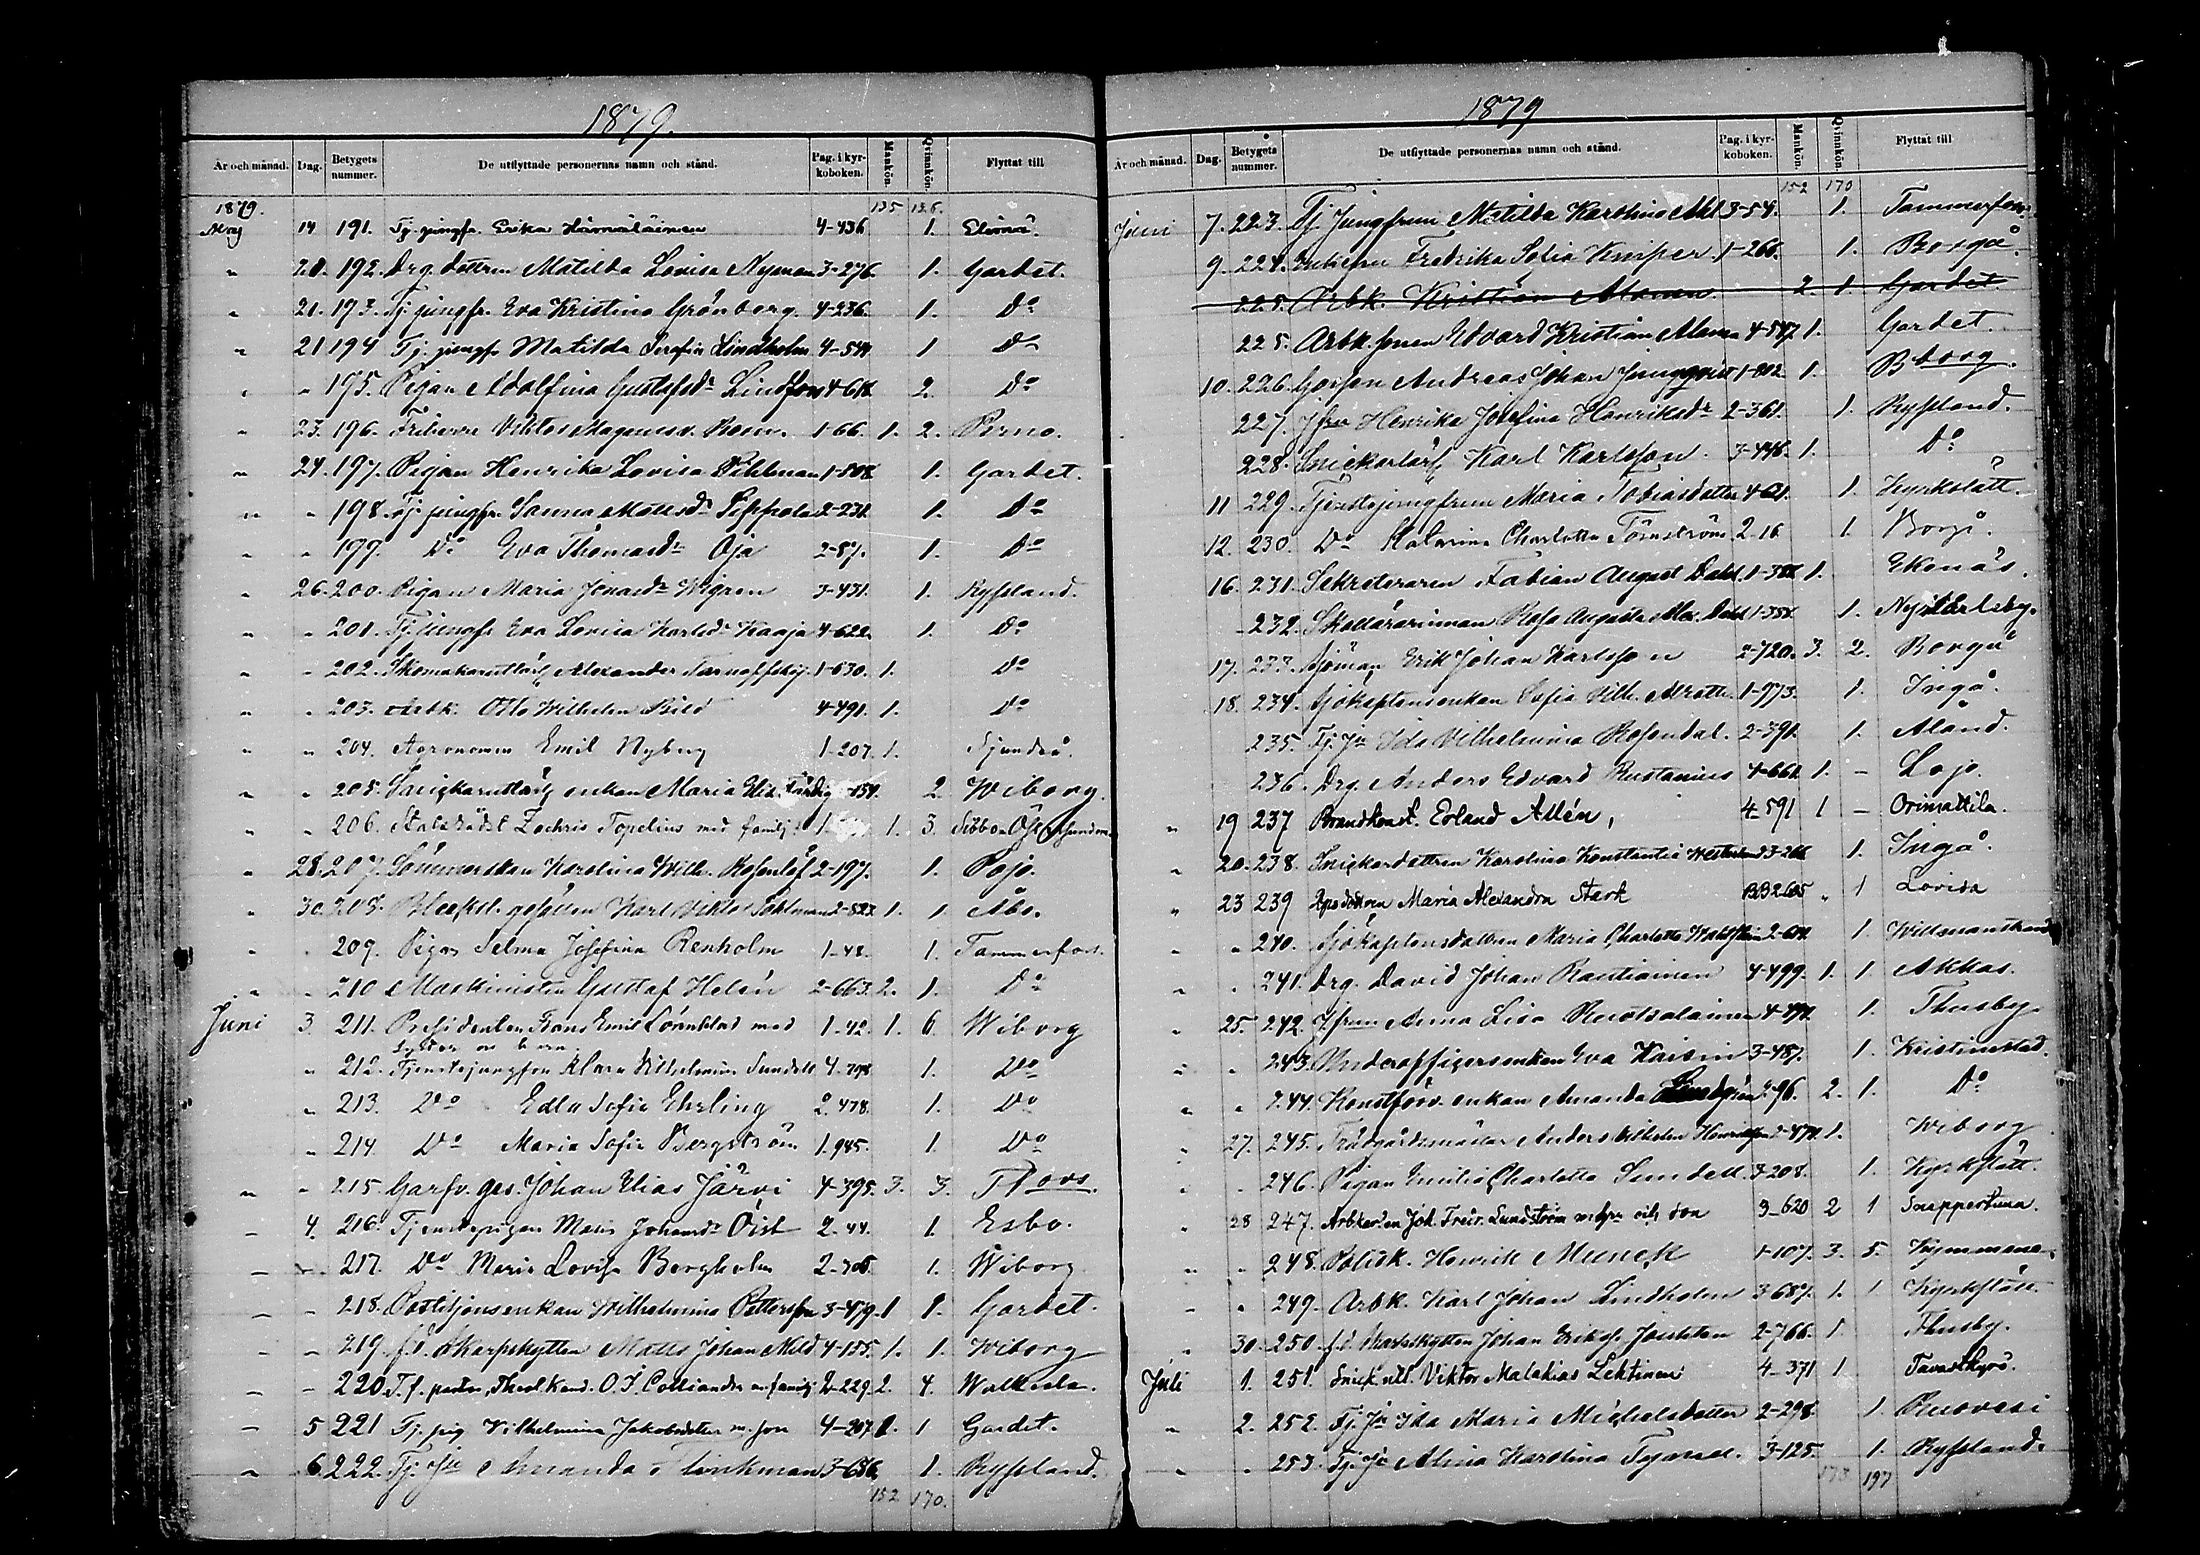 1879.
År och månad. Dag. Betygets nummer. De utflyttade personernas namn och stånd. Pag. i kyrkoboken. Mankön. Qvinnkön. Flyttat till
135 136.
1879.
Maj 14 191. Tj. jungfr. Erika Hämäläinen 4-436 1.
" 20. 192. Drg. dottren Matilda Lovisa Nyman 3-276. 1. Gardet.
" 21. 193. Tj. jungfr. Eva Kristina Grönberg. 4-236. 1. Do
" 21 194 Tj. jungfr Matilda Serafia Lindholm 4-544 1 Do
" " 195. Pigan Adolfina Gustafsdr Lindfors 2. Do
" 23. 196. Friherre Viktor Magnus v. Born. 1-66. 1. 2. Perno.
" 24. 197. Pigan Henrika Lovisa Pihlman 1. Gardet.
" " 198. Tj. jungfr. Sanna Mattsdr Sippola 2-231. 1. Do
" " 199. Do Eva Thomasdr Oja 2-87. 1. Do
" 26. 200. Pigan Maria Jonasdr Wigren 3-431. 1. Ryssland.
" " 201. Tj. jungfr Eva Lovisa Karlsdr Kaaja 4-622. 1. Do
" " 202. Skomakareutlärl. Alexander Tarnoffsky. 1-630. 1. Do
" " 203. Arbk. Otto Wilhelm Bild 4-491. 1. Do
" " 204. Agronomen Emil Nyberg 1-207. 1. Sjundeå.
" " 205. Snickareutlärl. enkan Maria Elis. 2. Wiborg.
" " 206. Statsrådet Zachris Topelius med familj. 1. 3. Sibbo
" 28. 207. Sömmerskan Karolina Wilh. Rosenlöf 2-197. 1. Pojo.
" 30. 208. Bleksl. gesällen Karl Viktor Sahlman 2-523. 1. 1 Åbo.
" " 209. Pigan Selma Josefina Renholm 1-48. 1. Tammerfors.
" " 210 Maskinisten Gustaf Helén 2-663. 2. 1. Do
Juni 3. 211. Presidenten Frans Emil Lörnblad med 1-42. 1. 6. Wiborg
" 212. Tjenstejungfrun Klara Vilhelmina Sundell 4-798 1. Do
" 213. Do Edla Sofia Ehrling 2. 478. 1. Do
" 214. Do Maria Sofia Bergström 1. 985. 1. Do
" " 215. Garfv. ges. Johan Elias Järvi 4-395. 3. 3.
" 4. 216. Tjenstepigan Maria Johansdr Öist 2-44. 1. Esbo.
" " 217. Do Maria Lovisa Bergholm 2-705. 1. Wiborg
" " 218. Postiljonsenkan Wilhelmina Pettersson 3-479. 1 1. Gardet.
" " 219. f.d. Skarpskytten Matts Johan Mild 4-155. 1. 1. Wiborg
" " 220. T.f. pastor, Theol. Kand. O.I. Colliander m. familj 2-229. 2. 4. Walkeala.
" 5 221 Tj. pig Vilhelmina Jakobsdotter m. son 4-207. 1. 1 Gardet.
" 6. 222. Tj. jfr Amanda Flinkman 3-636. 1. Ryssland.
152 170.
1879
År och månad. Dag. Betygets nummer. De utflyttade personernas namn och stånd. Pag. i kyrkoboken. Mankön. Qvinnkön. Flyttat till
152 170
Juni 7. 223. Tj. Jungfrun Matilda Karolina 3-54. 1. Tammerfors.
9. 224. Fredrika Sofia Kniper. 1-266. 1. Borgå.
225. Arbk. Kristian Manen. 2. 1. Gardet.
225. Arbk. sonen Edvard Kristian Manen 4-547. 1. Gardet.
10. 226. Garfven Andreas Johan Jungqvist 1. Bborg.
227. Jfrn Henrika Josefina Henriksdr 2-361. 1. Ryssland.
228. Snickarlärl. Karl Karlsson. 3-446. 1. Do
11 229. Tjenstejungfrun Maria Tobiasdotter 4-61. 1. Kyrkslätt.
12. 230. Do Katarina Charlotta Törnström 2. 16 1. Borgå.
16. 231. Sekreteraren Fabian August Dahl. 1. Ekenäs.
232. Skollärarinnan Rosa Augusta Alex. Dahl 1-358. 1. Nykarleby.
17. 233. Sjöman Erik Johan Karlsson 2-720. 3. 2. Borgå
18. 234. Sjökaptensenkan Sofia Wilh. 1-973. 1. Ingå.
235. Tj. Jfr Ida Vilhelmina Rosendal. 2-391. 1. Åland.
236. Drg. Anders Edvard Rustanius 4-661. 1. – Lojo.
" 19 237 Brandkonst. Erland Allén, 4-591 1 – Orimattila.
" 20. 238. Snickardottren Karolina Konstantia Westerlund 1. Ingå.
" 23 239 Maria Alexandra Stark BB2 605 " 1 Lovisa
" " 240. Sjökaptensdottren Maria Charlotta Wahlstein 1. Willmanstrand
" " 241. Drg. David Johan Rautiainen 4-499. 1. 1. Akkas.
" 25. 242. Jfrun Anna Lisa Ruotsalainen 1. Thusby.
" " 243. Underofficersenkan Eva Kaisin 3-487. 1. Kristinestad.
" " 244. Konstförv. enkan Amanda Lindgren 2-96. 2. 1. Do
" 27. 245. Trädgårdsmästar Anders Vilhelm Henriksson 1. Wiborg
" " 246. Pigan Emilia Charlotta Sundell 3-208. 1. Kyrkslätt.
" 28 247. Arbkarlen Joh. Fredr. Sundström m. hu och son 3-620 2 1 Snappertuna.
" " 248. Politik. Henrik Munck 1-107. 3. 5. Kymmene.
" " 249. Arbk. Karl Johan Lindholm 3-687. 1. 1 Kyrkslätt.
" 30. 250. f.d. Skarpskytten Johan Eriksson 2-766. 1. Thusby.
Juli 1. 251. Snick. utl. Viktor Malakias Lehtinen 4-371 1 Tavastkyrö.
" 2. 252. Tj. Jfr Ida Maria Michelsdotter 2-298. 1. Ruovesi
" " 253. Tj. Jfr Alina Karolina 3-125. 1. Ryssland.
173 197